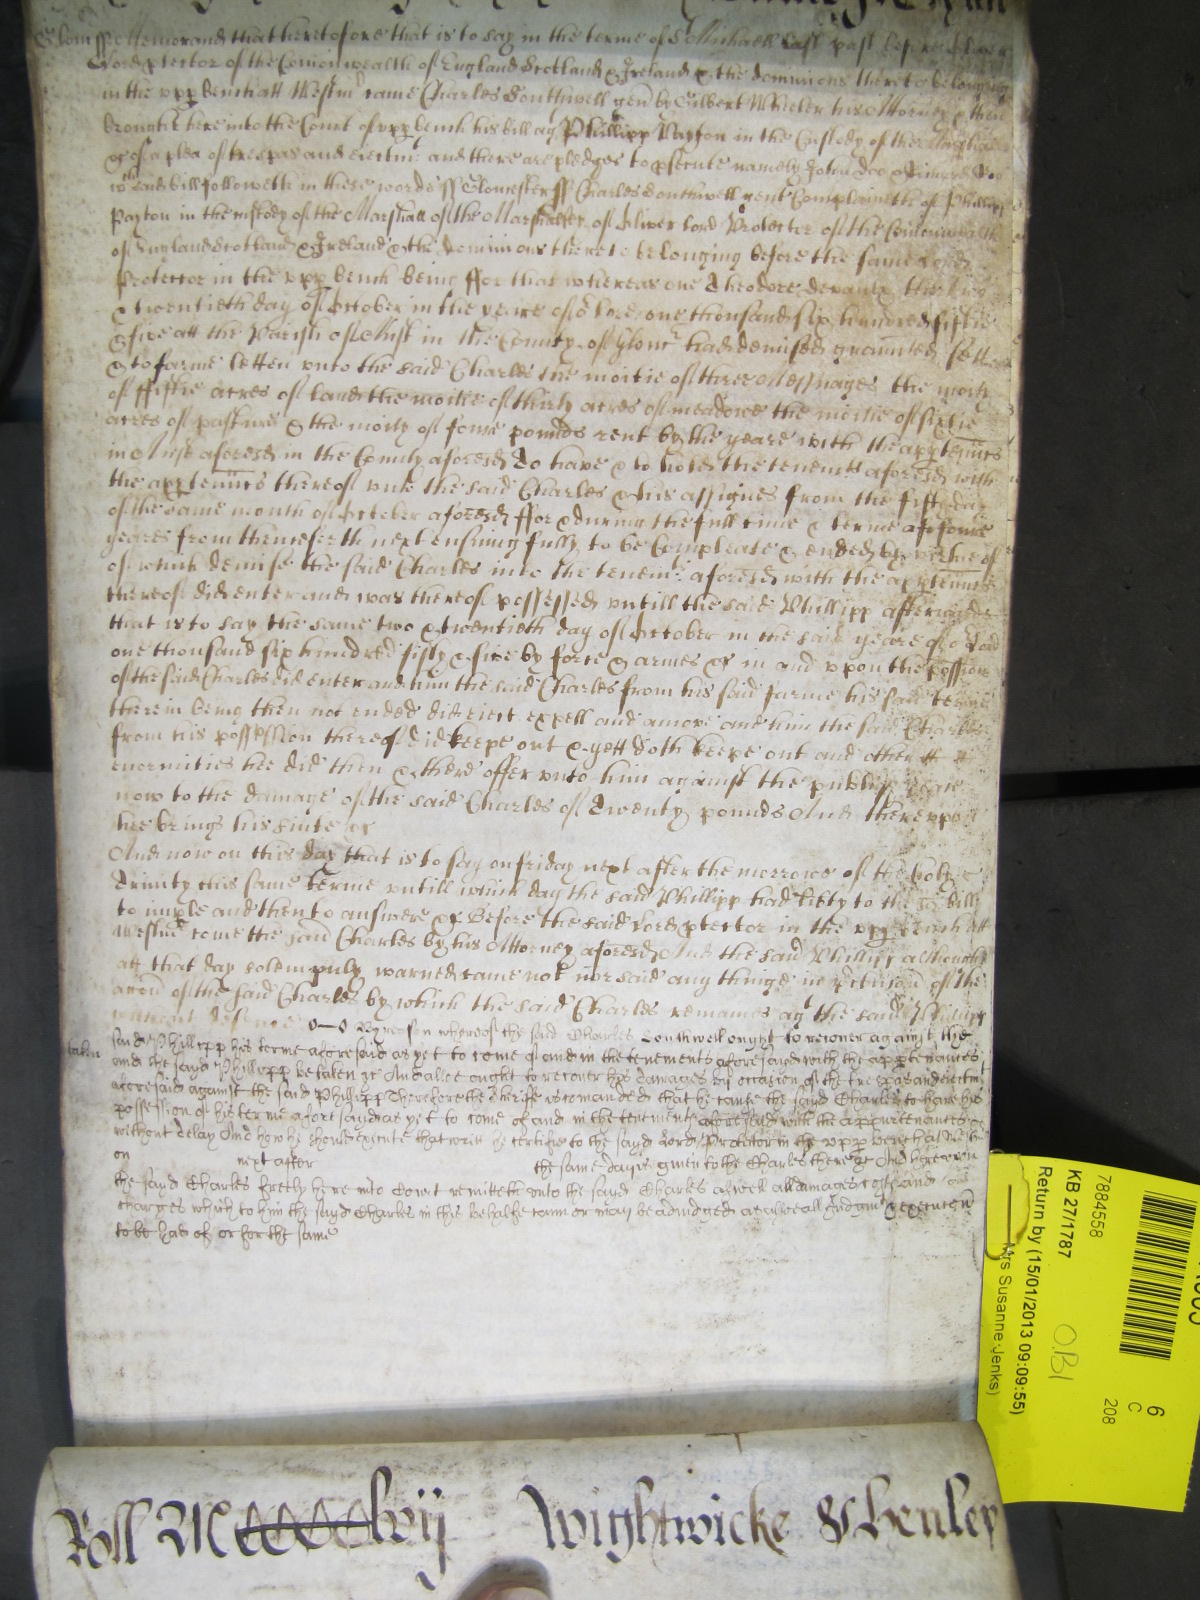 Glouc ss Memorand that heretofore that is to say in the terme of St Michaell last past before Oliver
Lord Ptector of the Comonwealth of England Scotland & Ireland & the dominions thereto belonging
in the upp bench att Westm came Charles Southwell gen by Gilbert Wheeler his Attorney & then
brought here into the Court of upp bench his bill ag Phillipp Payton in the Custody of the Marshall
&c of a plea of trespas and eiectmt and there are pledges to psecute namely John Doe & Richard Roe
wch said bill followeth in these words ss Gloucester ss Charles Southwell gent Complaineth of Phillipp
Payton in the custody of the Marshall of the Marshalsea of Oliver Lord Protector of the Comonwealth
of England Scotland & Ireland & the dominions thereto belonging before the same Lord
Protector in the upp bench being ffor that whereas one Theodore the two
& twentieth day of October in the yeare of or Lord one thousand six hundred fiftie
& five att the Parish of Aust in the County of Glouc had demised graunted sett
& to farme letten unto the said Charles the moitie of three Messuages the moity
of ffiftie acres of land the moitie of thirty acres of meadowe the moitie of sixtie
acres of pasture & the moity of fowre pounds rent by the yeare with the apptennces
in Aust aforesd in the County aforesd To have & to hold the tenemts aforesd with
the apptennces thereof unto the said Charles & his assignes from the day
of the same month of October aforesd ffor & during the full time & terme of
yeares from thenceforth next ensuing fully to be Compleate & ended by vertue of
of which demise the said Charles into the tenemts aforesd with the apptennces
thereof did enter and was thereof possessed untill the said Phillipp afterwards
that is to say the same two & twentieth day of October in the said yeare of or Lord
one thousand six hundred fifty & five by force & armes &c in and upon the possion
of the said Charles did enter and him the said Charles from his said farme his said terme
therein being then not ended did eiect expell and amove and him the said Charles
from his possession thereof did keepe out & yett doth keepe out and other
enormities hee did then & there offer unto him against the publique peace
now to the damage of the said Charles of Twenty pounds And thereuppon
hee brings his suite &c
And now on this day that is to say on friday next after the morrowe of the holy
Trinity this same terme untill which day the said Phillipp had libty to the sd bill
to imple and then to answere &c Before the said Lord Ptector in the upp bench att
Westmr come the said Charles by his Attorney aforesd And the said Phillipp although
att that day solempnly warned came not nor said any thinge in of the
accon of the said Charles by which the said Charles remaines agt the said Phillipp
without defence By reason whereof the said Charles Southwell ought to recover against the
taken
said Phillipp his terme aforesaid as yet to come of and in the tenements aforesayd with the apptenances
and the sayd Phillipp be taken &c And allsoe ought to recover his damages by occasion of the trespas and eiectmt
aforesaid against the said Phillipp Therefore the Sherife is comanded that he cause the said Charles to have his
possession of his terme aforesayd as yet to come of and in the tenements aforesayd with the appurtenances
without delay And how he should execute that writt he certifie to the sayd Lord Protector in the upp bench at Westm
on next after the same day is given to the Charles there &c And hereupon
the sayd Charles freely here into Court remitteth unto the sayd Charles as well all damages costs and
charges which to him the sayd Charles in this behalfe came or may be adiudged as also all Judgmt & execucon
to be had of or for the same
Roll lvij Wightwicke & Henley
7884558
KB 27/1787
Return by (15/01/2013 09:09:55)
Mrs Susanne Jenks)
OBI
6
C
208